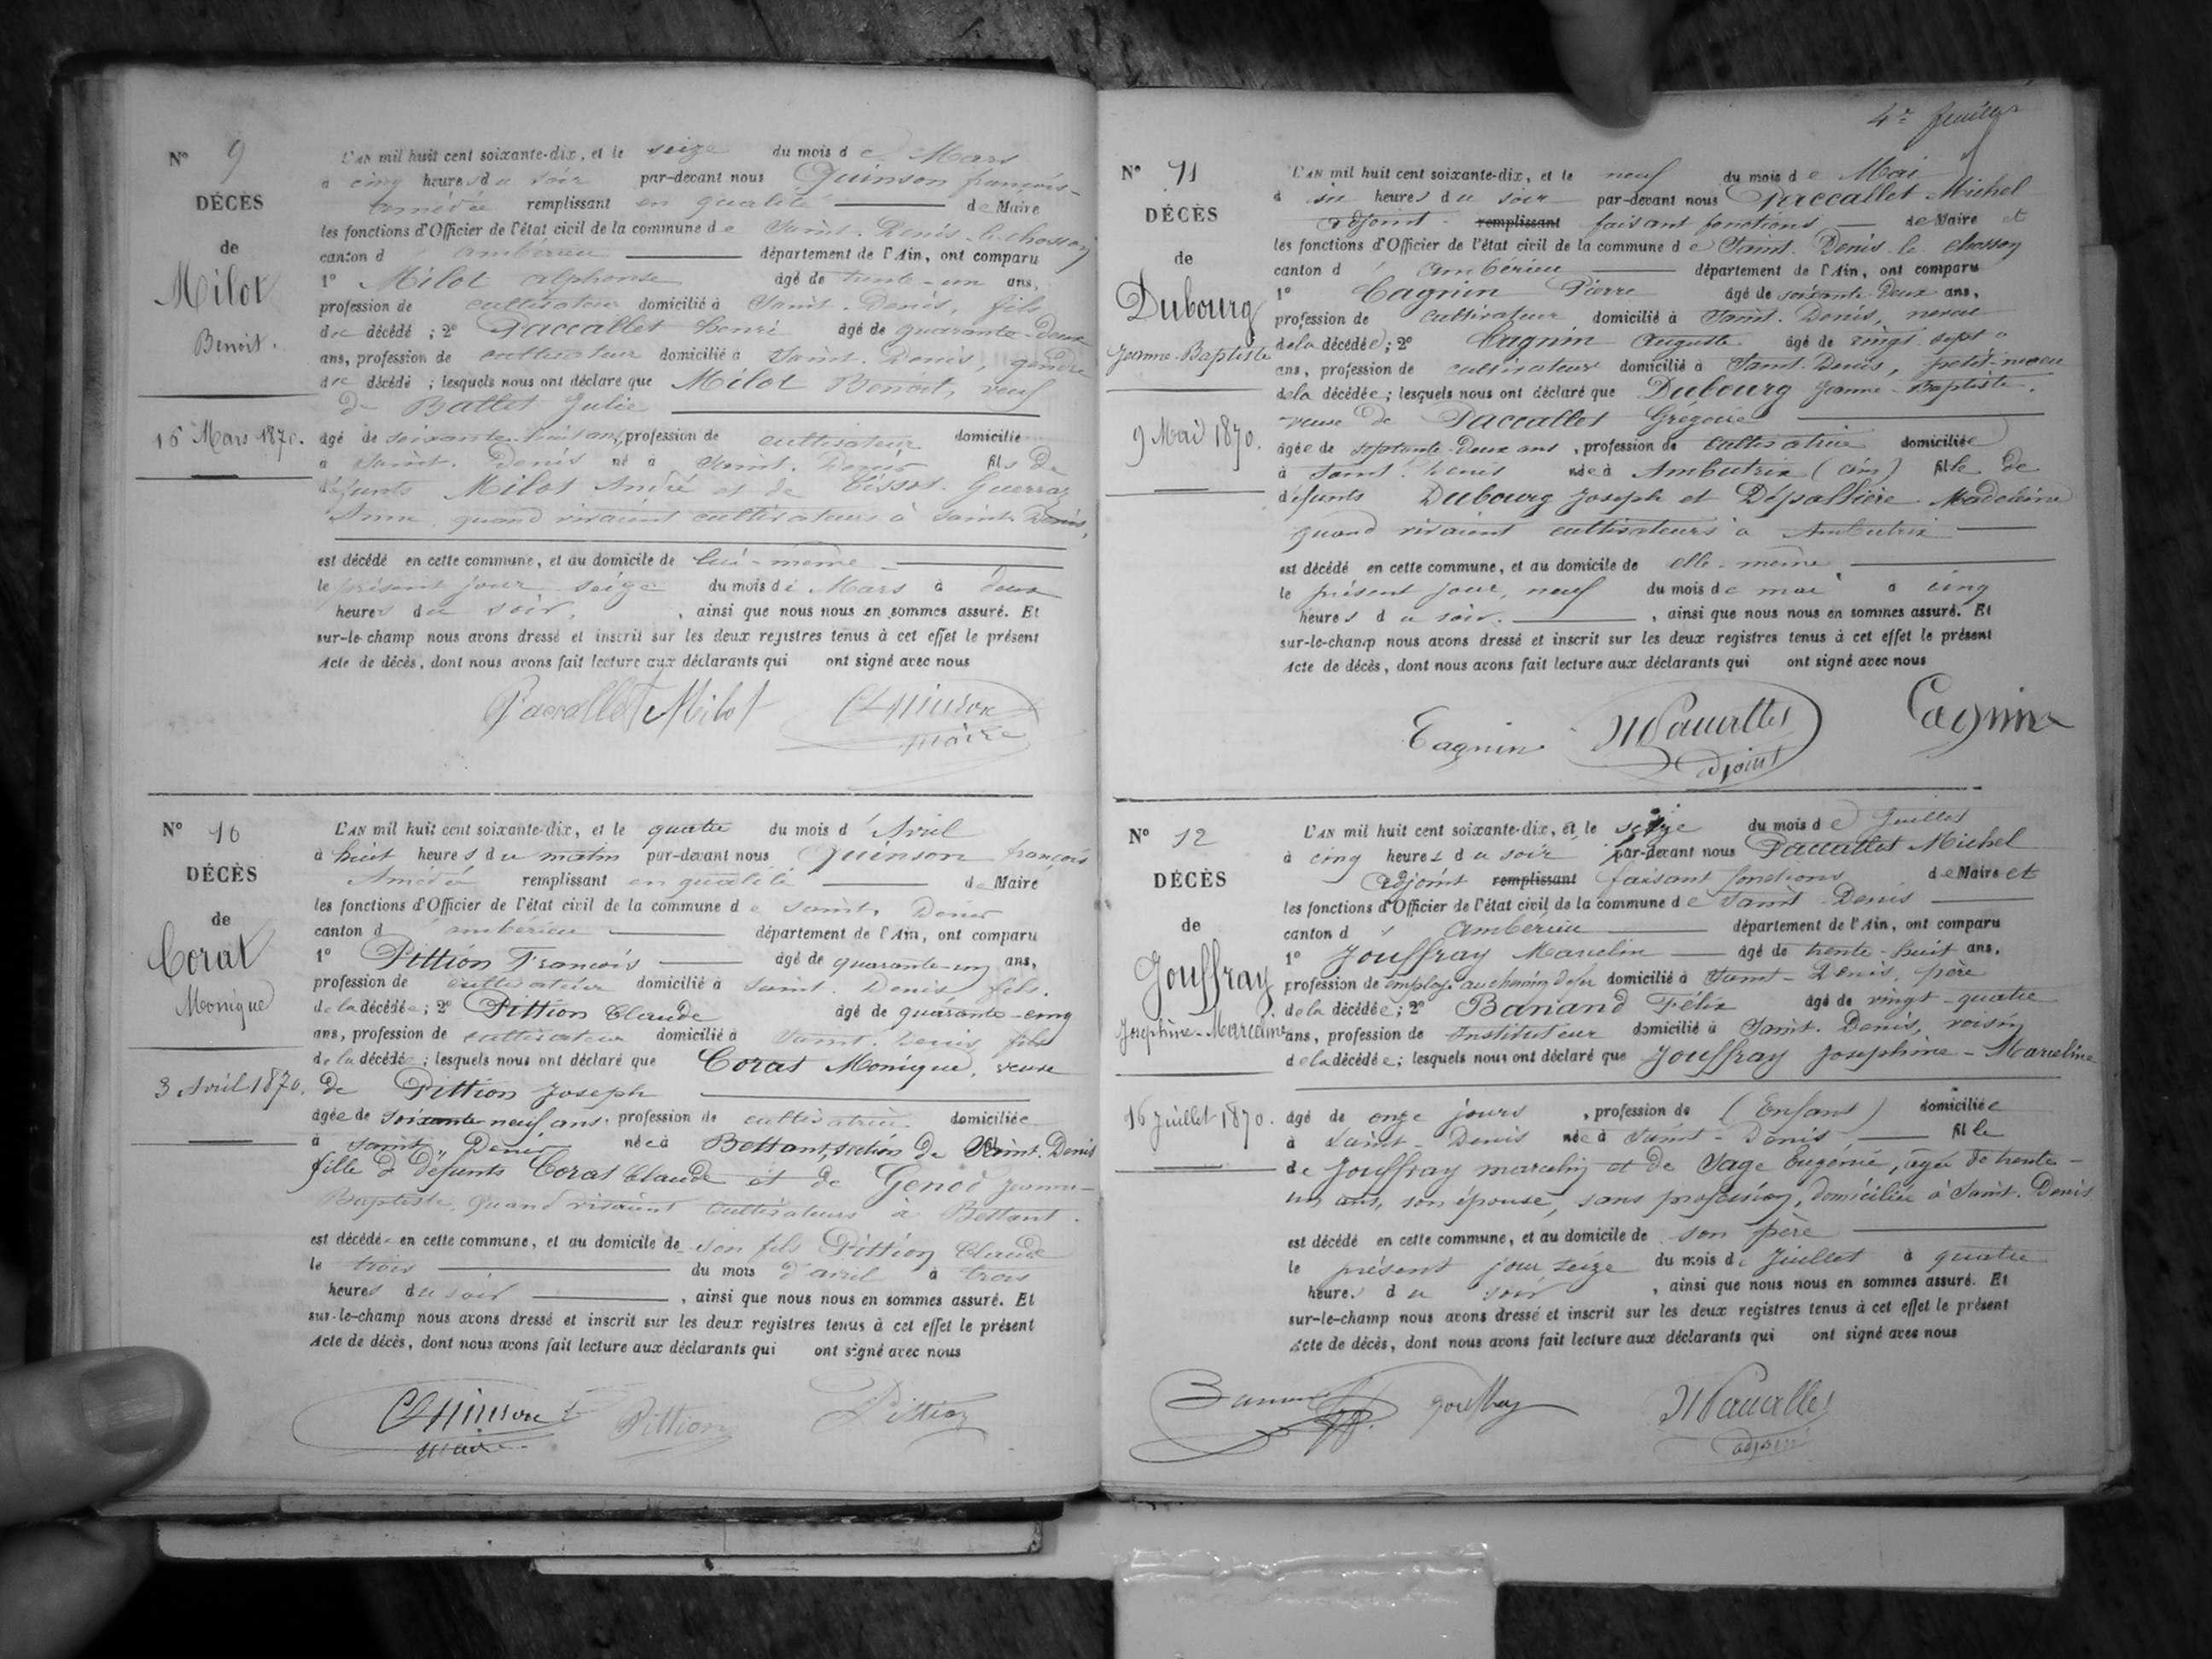 N° 9
DÉCÈS
de
Milot
Benoit.
16 Mars 1870.
L'AN mil huit cent soixante-dix, et le seize du mois de Mars
à cinq heures du soir par-devant nous Quinson françois-
Amédée remplissant en qualité de Maire
les fonctions d'Officier de l'état civil de la commune de Saint-Denis-le-chosson
canton d'ambérieu département de l'Ain, ont comparu
1° Milot alphonse âgé de trente-un ans,
profession de cultivateur domicilié à Saint-Denis, fils
du décédé ; 2° Paccallet henri âgé de quarante-deux
ans, profession de cultivateur domicilié à Saint-Denis, gendre
du décédé ; lesquels nous ont déclaré que Milot Benoit, veuf
de Ballet Julie
âgé de soixante-huit ans, profession de cultivateur domicilié
à Saint-Denis né à Saint-Denis fils de
défunts Milot André et de Tissot-Guerraz
Anne quand vivaient cultivateurs à Saint-Denis,
est décédé en cette commune, et au domicile de lui-même
le présent jour seize du mois de Mars à deux
heures du soir, , ainsi que nous nous en sommes assuré. Et
sur-le-champ nous avons dressé et inscrit sur les deux registres tenus à cet effet le présent
Acte de décès, dont nous avons fait lecture aux déclarants qui ont signé avec nous
Paccallet Milot Quinson
maire
N° 10
DÉCÈS
de
Corat
Monique
3 Avril 1870.
L'AN mil huit cent soixante-dix, et le quatre du mois d'Avril
à huit heures du matin par-devant nous Quinson françois
Amédée remplissant en qualité de Maire
les fonctions d'Officier de l'état civil de la commune de Saint-Denis
canton d'ambérieu département de l'Ain, ont comparu
1° Pittion François âgé de quarante-un ans,
profession de cultivateur domicilié à Saint-Denis fils.
de la décédée ; 2° Pittion Claude âgé de quarante-cinq
ans, profession de cultivateur domicilié à Saint-Denis fils
de la décédée ; lesquels nous ont déclaré que Corat Monique, veuve
de Pittion Joseph
âgée de soixante neuf ans, profession de cultivatrice domiciliée
à Saint-Denis née à Bettant, section de Saint-Denis
fille de défunts Corat Claude et de Genod Jeanne-
Baptiste, quand vivaient cultivateurs à Bettant.
est décédée en cette commune, et au domicile de son fils Pittion Claude
le trois du mois d'avril à trois
heures du soir , ainsi que nous nous en sommes assuré. Et
sur-le-champ nous avons dressé et inscrit sur les deux registres tenus à cet effet le présent
Acte de décès, dont nous avons fait lecture aux déclarants qui ont signé avec nous
Quinson Pittion Pittion
maire
4e feuillet
N° 11
DÉCÈS
de
Dubourg
Jeanne-Baptiste
9 Mai 1870.
L'AN mil huit cent soixante-dix, et le neuf du mois de Mai
à six heures du soir par-devant nous Paccallet Michel
adjoint remplissant faisant fonctions de Maire et
les fonctions d'Officier de l'état civil de la commune de Saint-Denis-le-chosson
canton d'ambérieu département de l'Ain, ont comparu
1° Cagnin Pierre âgé de soixante-deux ans,
profession de cultivateur domicilié à Saint-Denis, neveu
de la décédée ; 2° Cagnin Auguste âgé de vingt-sept
ans, profession de cultivateur domicilié à Saint-Denis, petit-neveu
de la décédée ; lesquels nous ont déclaré que Dubourg Jeanne-Baptiste.
veuve de Paccallet Grégoire
âgée de septante-deux ans, profession de cultivatrice domiciliée
à Saint-Denis née à Ambutrix (Ain) fille de
défunts Dubourg Joseph et Dépallière Madeleine
quand vivaient cultivateurs à Ambutrix
est décédé en cette commune, et au domicile de elle-même
le présent jour, neuf du mois de mai à cinq
heures du soir. , ainsi que nous nous en sommes assuré. Et
sur-le-champ nous avons dressé et inscrit sur les deux registres tenus à cet effet le présent
Acte de décès, dont nous avons fait lecture aux déclarants qui ont signé avec nous
Cagnin M Paccallet Cagnin
adjoint
N° 12
DÉCÈS
de
Jouffray
Joséphine-Marceline
16 Juillet 1870.
L'AN mil huit cent soixante-dix, et le seize du mois de Juillet
à cinq heures du soir par-devant nous Paccallet Michel
adjoint remplissant faisant fonctions de Maire et
les fonctions d'Officier de l'état civil de la commune de Saint-Denis
canton d'ambérieu département de l'Ain, ont comparu
1° Jouffray Marcelin âgé de trente-huit ans,
profession de employé au chemin de fer domicilié à Saint-Denis, père
de la décédée ; 2° Banand Félix âgé de vingt-quatre
ans, profession de Instituteur domicilié à Saint-Denis, voisin
de la décédée ; lesquels nous ont déclaré que Jouffray Joséphine-Marceline
âgé de onze jours , profession de (Enfant) domiciliée
à Saint-Denis née à Saint-Denis, fille
de Jouffray marcelin et de Sage Eugénie, âgée de trente-
un ans, son épouse, sans profession, domiciliée à Saint-Denis
est décédé en cette commune, et au domicile de son père
le présent jour seize du mois de Juillet à quatre
heures du soir , ainsi que nous nous en sommes assuré. Et
sur-le-champ nous avons dressé et inscrit sur les deux registres tenus à cet effet le présent
Acte de décès, dont nous avons fait lecture aux déclarants qui ont signé avec nous
Banand Jouffray M Paccallet
adjoint